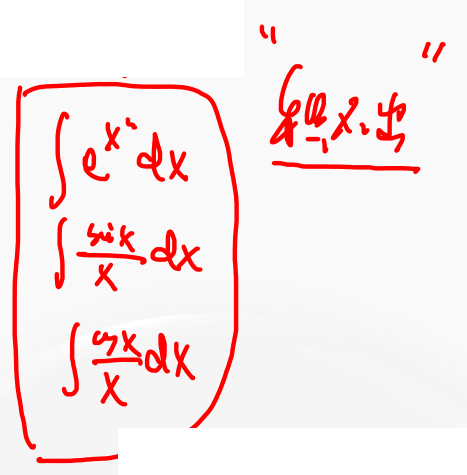 ∫ e^{x²} dx
∫ \frac{sin x}{x} dx
∫ \frac{cos x}{x} dx